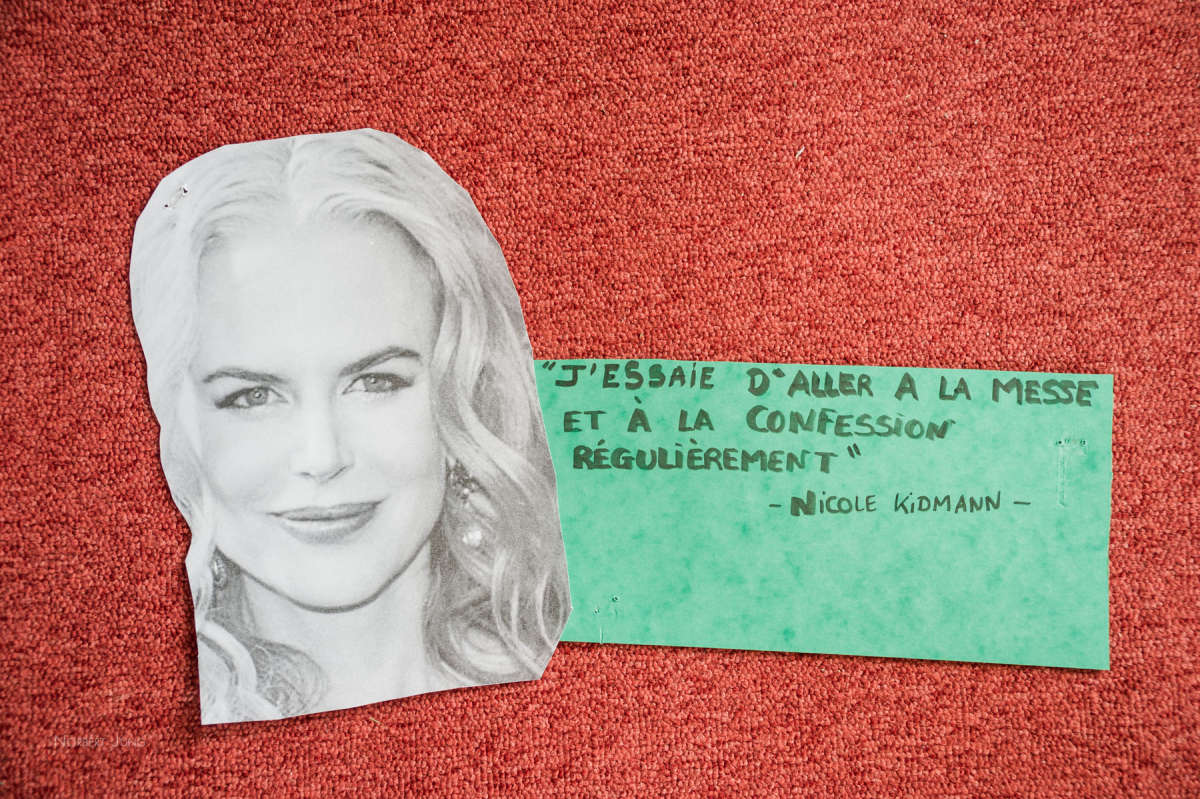 "J'ESSAIE D'ALLER A LA MESSE
ET À LA CONFESSION
RÉGULIÈREMENT"
- NICOLE KIDMANN -